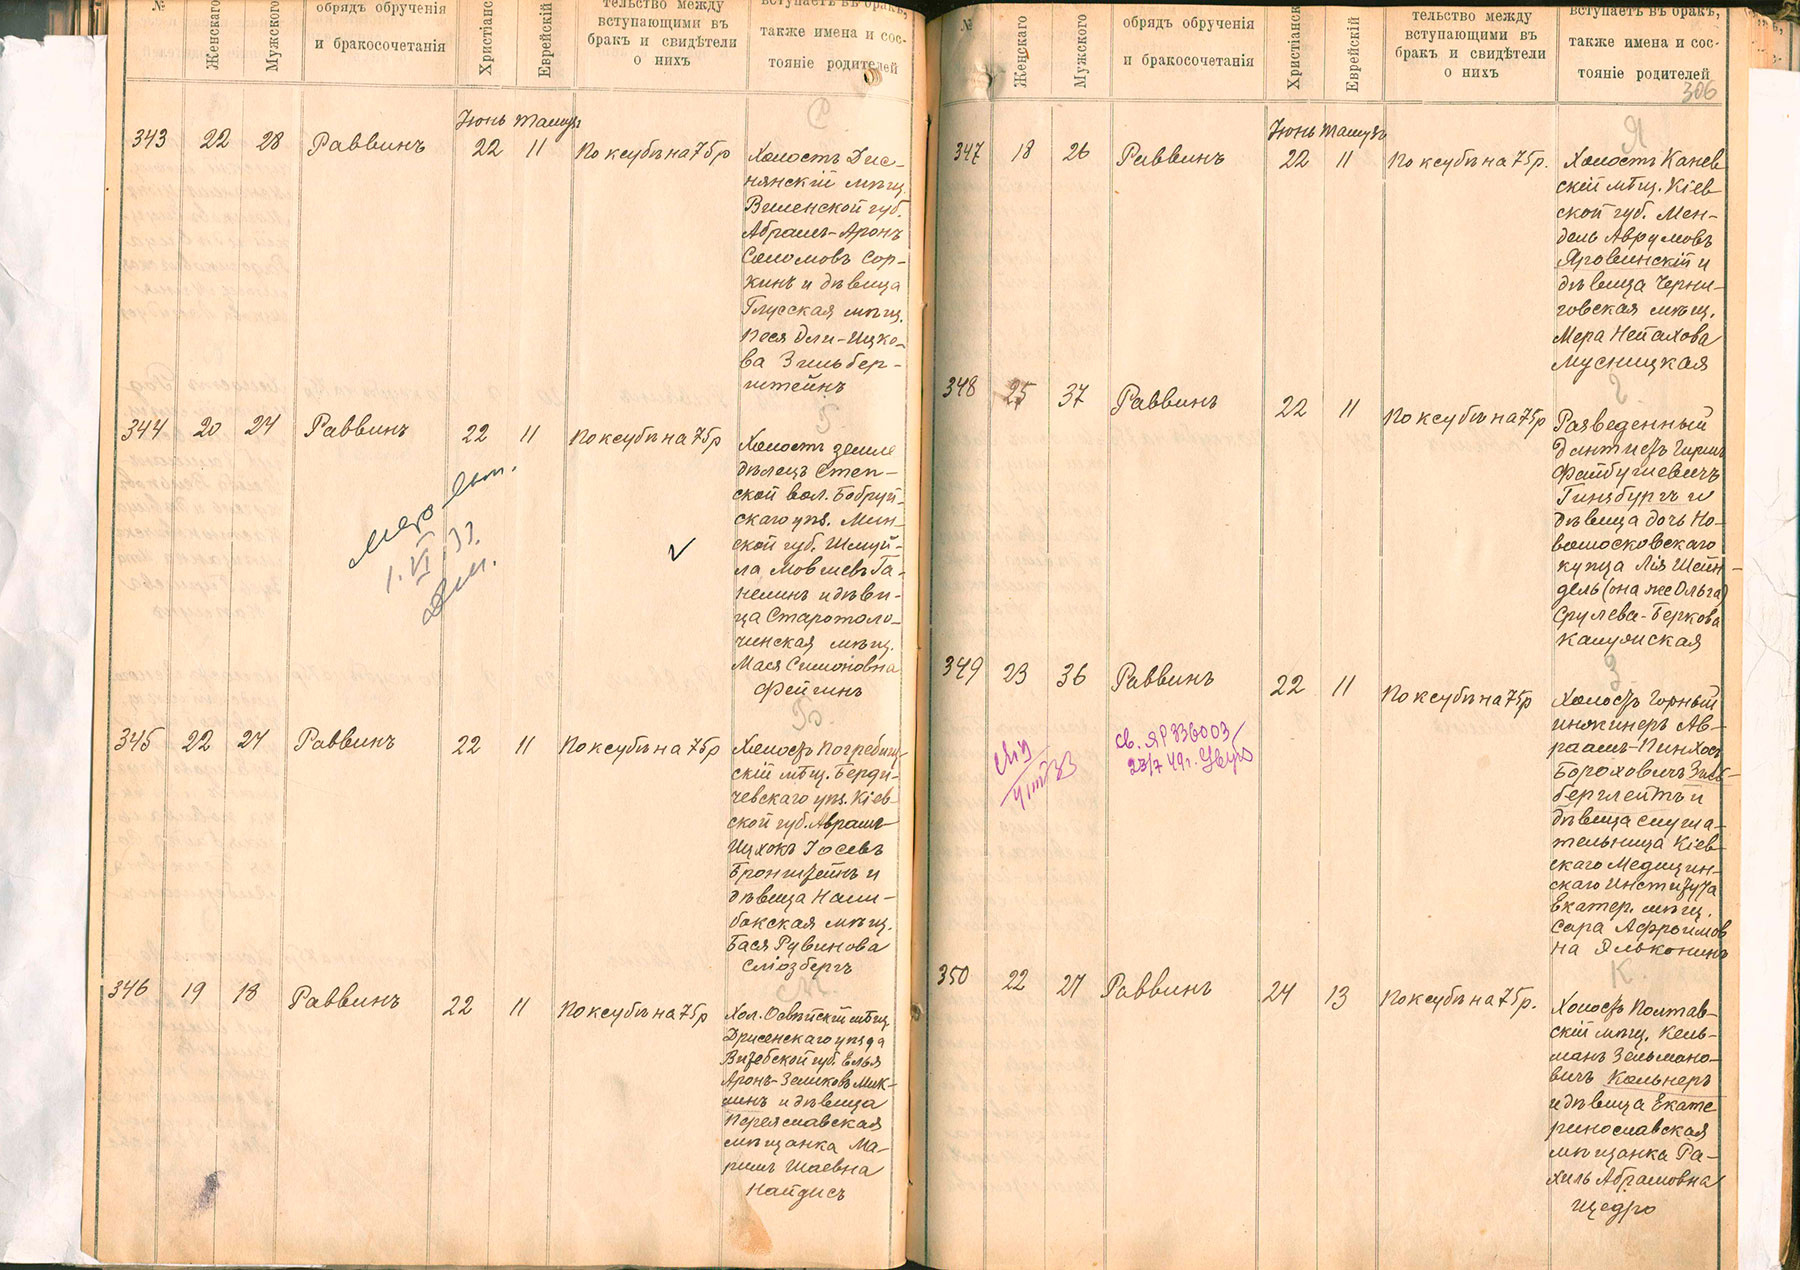 №
Женскаго
Мужского
обрядъ обрученія
и бракосочетанія
Христіанс
Еврейскій
тельство между
вступающими въ
бракъ и свидѣтели
о нихъ
вступаетъ въ бракъ,
также имена и сос-
тояніе родителей
С
Іюнь Тамузъ
343 22 28 Раввинъ 22 11 По ксубѣ на 75 р
Холостъ Дис-
нянскій мѣщ.
Виленской губ.
Абрамъ-Аронъ
Соломовъ Сор-
кинъ и дѣвица
Глусская мѣщ.
Песя Эли-Ицко-
ва Зильбер-
штейнъ
Г
344 20 24 Раввинъ 22 11 По ксубѣ на 75 р
Холостъ земле
дѣлецъ Степ-
ской вол. Бобруй-
скаго уѣз. Мин-
ской губ. Шмуй-
ла Мовшевъ Га-
нелинъ и дѣви-
ца Старотоло-
чинская мѣщ.
Мася Симоновна
Фейгинъ
1. VI 33.
Б
345 22 27 Раввинъ 22 11 По ксубѣ на 75 р
Холостъ Погребищ-
скій мѣщ. Берди-
чевскаго уѣз. Кіев-
ской губ. Аврамъ
Ицхокъ Іосевъ
Бронштейнъ и
дѣвица Нали-
бокская мѣщ.
Бася Рувинова
Сліозбергъ
М
346 19 18 Раввинъ 22 11 По ксубѣ на 75 р
Хол. Освѣйскій мѣщ.
Дрисенскаго уѣзда
Витебской губ. Элья
Аронъ-Зеликовъ Мик-
линъ и дѣвица
Переяславская
мѣщанка Ма-
римъ Шаевна
Найдисъ
№
Женскаго
Мужского
обрядъ обрученія
и бракосочетанія
Христіанск
Еврейскій
тельство между
вступающими въ
бракъ и свидѣтели
о нихъ
вступаетъ въ бракъ,
также имена и сос-
тояніе родителей
306
Я
Іюнь Тамузъ
347 18 26 Раввинъ 22 11 По ксубѣ на 75 р.
Холостъ Канев
скій мѣщ. Кіев-
ской губ. Мен-
дель Аврумовъ
Яровинскій и
дѣвица Черни-
говская мѣщ.
Мера Нейахова
Мусницкая
Г
348 25 37 Раввинъ 22 11 По ксубѣ на 75 р
Разведенный
Дантистъ Гиршъ
Файбушевичъ
Гинзбургъ и
дѣвица дочь Но-
вомосковскаго
купца Лія Шейн-
дель (она же Ольга)
Срулева-Беркова
З
349 23 36 Раввинъ 22 11 По ксубѣ на 75 р
Холостъ Горный
инженеръ Ав-
раамъ-Пинхосъ
Бороховичъ Зиль-
берглейтъ и
дѣвица слуша-
тельница Кіев-
скаго Медицин-
скаго Института
Екатер. мѣщ.
Сара Афроимов
на Яльконинъ
св. ЯР 336003
23/7 49 г.
К
350 22 27 Раввинъ 24 13 По ксубѣ на 75 р.
Холостъ Полтав-
скій мѣщ. Кель-
манъ Зельмано-
вичъ Кельнеръ
и дѣвица Екате
ринославская
мѣщанка Ра-
хиль Абрамовна
Щедро